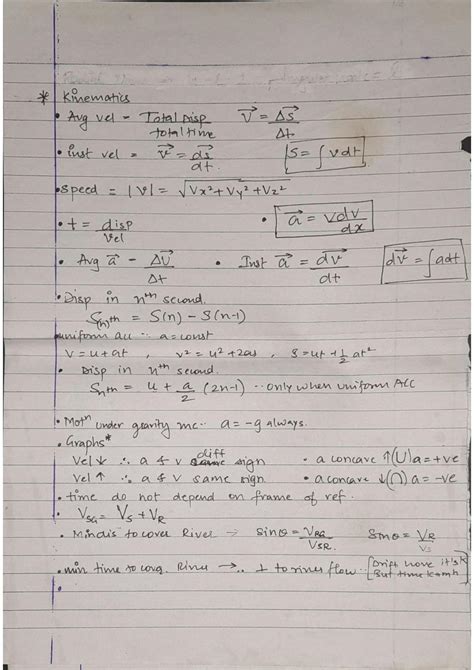 * Kinematics
• Avg vel - Total Disp / total time   v⃗ = Δs⃗ / Δt
• inst vel = v⃗ = ds⃗ / dt.   S = ∫ v dt
• Speed = |v| = √Vx² + Vy² + Vz²
• t = disp / vel   • a⃗ = v dv / dx
• Avg a⃗ - Δv⃗ / Δt   • Inst a⃗ = dv⃗ / dt   dv⃗ = ∫ a dt
• Disp in nth second.
S(n)th = S(n) - S(n-1)
uniform acc ∵ a = const
v = u + at , v² = u² + 2as , S = ut + 1/2 at²
• Disp in nth second.
Snth = u + a/2 (2n-1) ·· only when uniform Acc
• Motn under gravity a = -g always.
• Graphs*
Vel ↓ ∴ a & v diff sign   • a concave ↑(U) a = +ve
Vel ↑ ∴ a & v same sign   • a concave ↓(∩) a = -ve
• time do not depend on frame of ref.
• VSG = VS + VR
• Mindis to cover River → sinθ = VRG / VSR.   Sinθ = VR / VS
• min time to River → .. ⊥ to river flow ·· [Drift more it's
But time